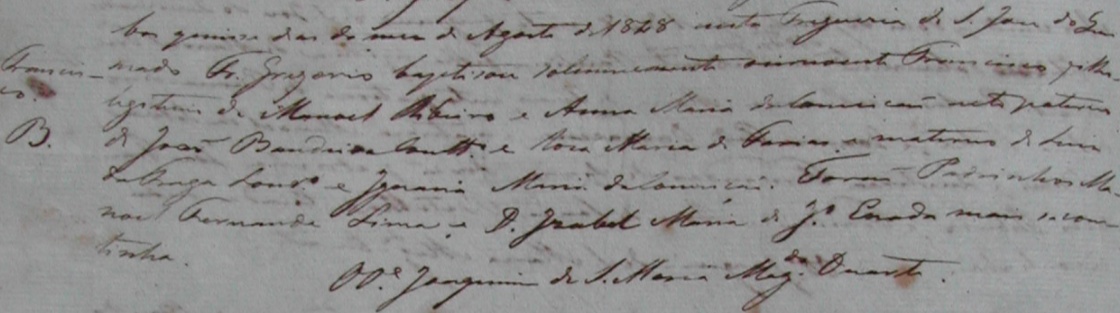 Aos quinze dias do mes de Agosto de 1828 nesta Freguezia de S. José do
Francis-
co.
B.
Fr. Gregorio baptisou solemnemente innocente Francisco filho
legitimo de Manoel Ribeiro e Anna Maria da Conceicaõ neto paterno
de Joaõ e Roza Maria de Farias e materno de
Braga e Ignacia Maria da Conceicaõ. Foraõ Padrinhos Ma
noel Fernandes Lima, e D. Izabel Maria de Js. Enada mais se con
tinha.
O Pe. Joaquim de S. Maria Magda. Duarte.